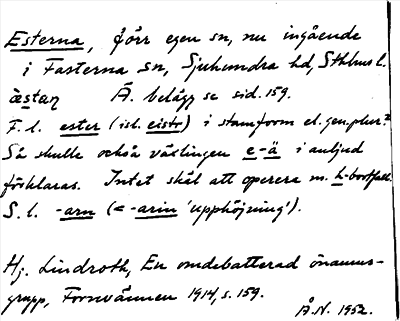 Esterna, förr egen sn, nu ingående
i Fasterna sn, Sjuhundra hd, Sthlms l.
æ̀staṇ Ä. belägg se sid. 159.
F. l. ester (isl. eistr) i stamform el. gen. plur.?
Så skulle också växlingen e-ä i anljud
förklaras. Intet skäl att operera m. h-bortfall.
S. l. -arn (= -arin 'upphöjning').
Hj. Lindroth, En omdebatterad önamns-
grupp, Fornvännen 1914, s. 159.
Å.N. 1952.